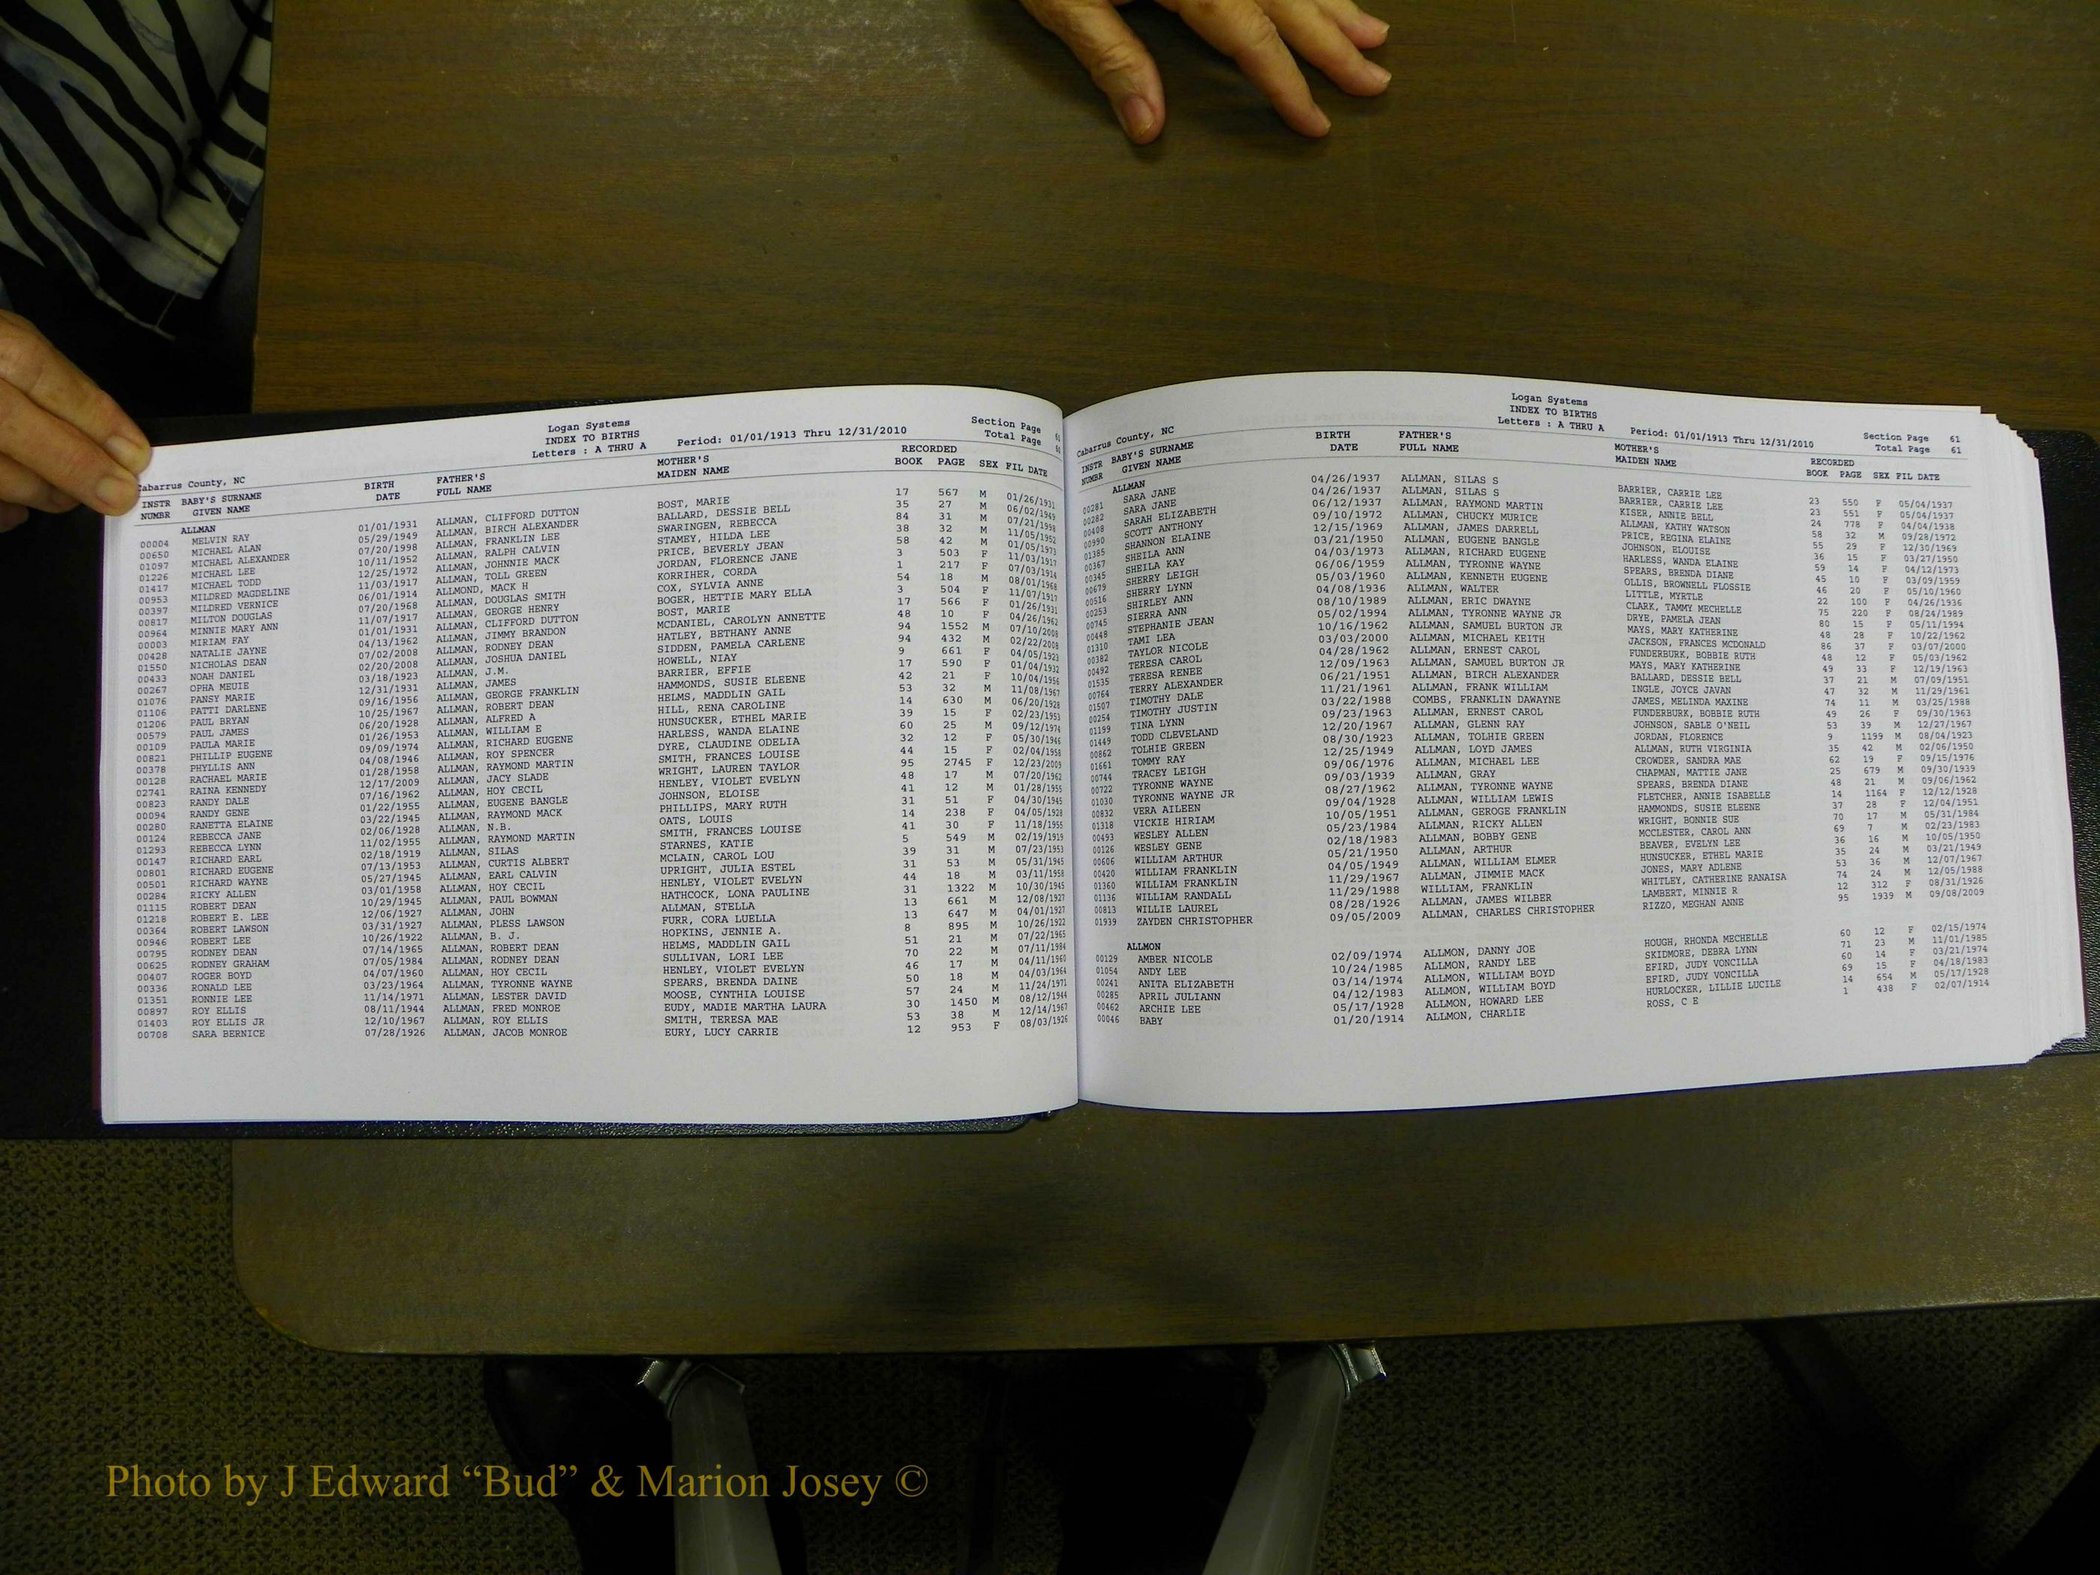 Logan Systems
INDEX TO BIRTHS
Letters : A THRU A
Cabarrus County, NC Period: 01/01/1913 Thru 12/31/2010 Section Page
Total Page
INSTR BABY'S SURNAME BIRTH FATHER'S MOTHER'S RECORDED
NUMBR GIVEN NAME DATE FULL NAME MAIDEN NAME BOOK PAGE SEX FIL DATE
ALLMAN
00004 MELVIN RAY 01/01/1931 ALLMAN, CLIFFORD DUTTON BOST, MARIE 17 567 M 01/26/1931
00650 MICHAEL ALAN 05/29/1949 ALLMAN, BIRCH ALEXANDER BALLARD, DESSIE BELL 35 27 M 06/02/1949
01097 MICHAEL ALEXANDER 07/20/1998 ALLMAN, FRANKLIN LEE SWARINGEN, REBECCA 84 31 M 07/21/1998
01226 MICHAEL LEE 10/11/1952 ALLMAN, RALPH CALVIN STAMEY, HILDA LEE 38 32 M 11/05/1952
01417 MICHAEL TODD 12/25/1972 ALLMAN, JOHNNIE MACK PRICE, BEVERLY JEAN 58 42 M 01/05/1973
00953 MILDRED MAGDELINE 11/03/1917 ALLMAN, TOLL GREEN JORDAN, FLORENCE JANE 3 503 F 11/03/1917
00397 MILDRED VERNICE 06/01/1914 ALLMOND, MACK H KORRIHER, CORDA 1 217 F 07/03/1914
00817 MILTON DOUGLAS 07/20/1968 ALLMAN, DOUGLAS SMITH COX, SYLVIA ANNE 54 18 M 08/01/1968
00964 MINNIE MARY ANN 11/07/1917 ALLMAN, GEORGE HENRY BOGER, HETTIE MARY ELLA 3 504 F 11/07/1917
00003 MIRIAM FAY 01/01/1931 ALLMAN, CLIFFORD DUTTON BOST, MARIE 17 566 F 01/26/1931
00428 NATALIE JAYNE 04/13/1962 ALLMAN, JIMMY BRANDON MCDANIEL, CAROLYN ANNETTE 48 10 F 04/26/1962
01550 NICHOLAS DEAN 07/02/2008 ALLMAN, RODNEY DEAN HATLEY, BETHANY ANNE 94 1552 M 07/10/2008
00433 NOAH DANIEL 02/20/2008 ALLMAN, JOSHUA DANIEL SIDDEN, PAMELA CARLENE 94 432 M 02/22/2008
00267 OPHA MEUIE 03/18/1923 ALLMAN, J.M. HOWELL, NIAY 9 661 F 04/05/1923
01076 PANSY MARIE 12/31/1931 ALLMAN, JAMES BARRIER, EFFIE 17 590 F 01/04/1932
01106 PATTI DARLENE 09/16/1956 ALLMAN, GEORGE FRANKLIN HAMMONDS, SUSIE ELEENE 42 21 F 10/04/1956
01206 PAUL BRYAN 10/25/1967 ALLMAN, ROBERT DEAN HELMS, MADDLIN GAIL 53 32 M 11/08/1967
00579 PAUL JAMES 06/20/1928 ALLMAN, ALFRED A HILL, RENA CAROLINE 14 630 M 06/20/1928
00109 PAULA MARIE 01/26/1953 ALLMAN, WILLIAM E HUNSUCKER, ETHEL MARIE 39 15 F 02/23/1953
00821 PHILLIP EUGENE 09/09/1974 ALLMAN, RICHARD EUGENE HARLESS, WANDA ELAINE 60 25 M 09/12/1974
00378 PHYLLIS ANN 04/08/1946 ALLMAN, ROY SPENCER DYRE, CLAUDINE ODELIA 32 12 F 05/30/1946
00128 RACHAEL MARIE 01/28/1958 ALLMAN, RAYMOND MARTIN SMITH, FRANCES LOUISE 44 15 F 02/04/1958
02741 RAINA KENNEDY 12/17/2009 ALLMAN, JACY SLADE WRIGHT, LAUREN TAYLOR 95 2745 F 12/23/2009
00823 RANDY DALE 07/16/1962 ALLMAN, HOY CECIL HENLEY, VIOLET EVELYN 48 17 M 07/20/1962
00094 RANDY GENE 01/22/1955 ALLMAN, EUGENE BANGLE JOHNSON, ELOISE 41 12 M 01/28/1955
00280 RANETTA ELAINE 03/22/1945 ALLMAN, RAYMOND MACK PHILLIPS, MARY RUTH 31 51 F 04/30/1945
00124 REBECCA JANE 02/06/1928 ALLMAN, N.B. OATS, LOUIS 14 238 F 04/05/1928
01293 REBECCA LYNN 11/02/1955 ALLMAN, RAYMOND MARTIN SMITH, FRANCES LOUISE 41 30 F 11/18/1955
00147 RICHARD EARL 02/18/1919 ALLMAN, SILAS STARNES, KATIE 5 549 M 02/19/1919
00801 RICHARD EUGENE 07/13/1953 ALLMAN, CURTIS ALBERT MCLAIN, CAROL LOU 39 31 M 07/23/1953
00501 RICHARD WAYNE 05/27/1945 ALLMAN, EARL CALVIN UPRIGHT, JULIA ESTEL 31 53 M 05/31/1945
00284 RICKY ALLEN 03/01/1958 ALLMAN, HOY CECIL HENLEY, VIOLET EVELYN 44 18 M 03/11/1958
01115 ROBERT DEAN 10/29/1945 ALLMAN, PAUL BOWMAN HATHCOCK, LONA PAULINE 31 1322 M 10/30/1945
01218 ROBERT E. LEE 12/06/1927 ALLMAN, JOHN ALLMAN, STELLA 13 661 M 12/08/1927
00364 ROBERT LAWSON 03/31/1927 ALLMAN, PLESS LAWSON FURR, CORA LUELLA 13 647 M 04/01/1927
00946 ROBERT LEE 10/26/1922 ALLMAN, B. J. HOPKINS, JENNIE A. 8 895 M 10/26/1922
00795 RODNEY DEAN 07/14/1965 ALLMAN, ROBERT DEAN HELMS, MADDLIN GAIL 51 21 M 07/22/1965
00625 RODNEY GRAHAM 07/05/1984 ALLMAN, RODNEY DEAN SULLIVAN, LORI LEE 70 22 M 07/11/1984
00407 ROGER BOYD 04/07/1960 ALLMAN, HOY CECIL HENLEY, VIOLET EVELYN 46 17 M 04/11/1960
00336 RONALD LEE 03/23/1964 ALLMAN, TYRONNE WAYNE SPEARS, BRENDA DAINE 50 18 M 04/03/1964
01351 RONNIE LEE 11/14/1971 ALLMAN, LESTER DAVID MOOSE, CYNTHIA LOUISE 57 24 M 11/24/1971
00897 ROY ELLIS 08/11/1944 ALLMAN, FRED MONROE EUDY, MADIE MARTHA LAURA 30 1450 M 08/12/1944
01403 ROY ELLIS JR 12/10/1967 ALLMAN, ROY ELLIS SMITH, TERESA MAE 53 38 M 12/14/1967
00708 SARA BERNICE 07/28/1926 ALLMAN, JACOB MONROE EURY, LUCY CARRIE 12 953 F 08/03/1926
Logan Systems
INDEX TO BIRTHS
Letters : A THRU A
Cabarrus County, NC Period: 01/01/1913 Thru 12/31/2010 Section Page 61
Total Page 61
INSTR BABY'S SURNAME BIRTH FATHER'S MOTHER'S RECORDED
NUMBR GIVEN NAME DATE FULL NAME MAIDEN NAME BOOK PAGE SEX FIL DATE
ALLMAN
00281 SARA JANE 04/26/1937 ALLMAN, SILAS S BARRIER, CARRIE LEE 23 550 F 05/04/1937
00282 SARA JANE 04/26/1937 ALLMAN, SILAS S BARRIER, CARRIE LEE 23 551 F 05/04/1937
00408 SARAH ELIZABETH 06/12/1937 ALLMAN, RAYMOND MARTIN KISER, ANNIE BELL 24 778 F 04/04/1938
00990 SCOTT ANTHONY 09/10/1972 ALLMAN, CHUCKY MURICE ALLMAN, KATHY WATSON 58 32 M 09/28/1972
01385 SHANNON ELAINE 12/15/1969 ALLMAN, JAMES DARRELL PRICE, REGINA ELAINE 55 29 F 12/30/1969
00367 SHEILA ANN 03/21/1950 ALLMAN, EUGENE BANGLE JOHNSON, ELOUISE 36 15 F 03/27/1950
00345 SHEILA KAY 04/03/1973 ALLMAN, RICHARD EUGENE HARLESS, WANDA ELAINE 59 14 F 04/12/1973
00679 SHERRY LEIGH 06/06/1959 ALLMAN, TYRONNE WAYNE SPEARS, BRENDA DIANE 45 10 F 03/09/1959
00516 SHERRY LYNN 05/03/1960 ALLMAN, KENNETH EUGENE OLLIS, BROWNELL FLOSSIE 46 20 F 05/10/1960
00253 SHIRLEY ANN 04/08/1936 ALLMAN, WALTER LITTLE, MYRTLE 22 100 F 04/26/1936
00745 SIERRA ANN 08/10/1989 ALLMAN, ERIC DWAYNE CLARK, TAMMY MECHELLE 75 220 F 08/24/1989
00448 STEPHANIE JEAN 05/02/1994 ALLMAN, TYRONNE WAYNE JR DRYE, PAMELA JEAN 80 15 F 05/11/1994
01310 TAMI LEA 10/16/1962 ALLMAN, SAMUEL BURTON JR MAYS, MARY KATHERINE 48 28 F 10/22/1962
00382 TAYLOR NICOLE 03/03/2000 ALLMAN, MICHAEL KEITH JACKSON, FRANCES MCDONALD 86 37 F 03/07/2000
00492 TERESA CAROL 04/28/1962 ALLMAN, ERNEST CAROL FUNDERBURK, BOBBIE RUTH 48 12 F 05/03/1962
01535 TERESA RENEE 12/09/1963 ALLMAN, SAMUEL BURTON JR MAYS, MARY KATHERINE 49 33 F 12/19/1963
00764 TERRY ALEXANDER 06/21/1951 ALLMAN, BIRCH ALEXANDER BALLARD, DESSIE BELL 37 21 M 07/09/1951
01507 TIMOTHY DALE 11/21/1961 ALLMAN, FRANK WILLIAM INGLE, JOYCE JAVAN 47 32 M 11/29/1961
00254 TIMOTHY JUSTIN 03/22/1988 COMBS, FRANKLIN DAWAYNE JAMES, MELINDA MAXINE 74 11 M 03/25/1988
01199 TINA LYNN 09/23/1963 ALLMAN, ERNEST CAROL FUNDERBURK, BOBBIE RUTH 49 26 F 09/30/1963
01449 TODD CLEVELAND 12/20/1967 ALLMAN, GLENN RAY JOHNSON, SABLE O'NEIL 53 39 M 12/27/1967
00862 TOLHIE GREEN 08/30/1923 ALLMAN, TOLHIE GREEN JORDAN, FLORENCE 9 1199 M 08/04/1923
01661 TOMMY RAY 12/25/1949 ALLMAN, LOYD JAMES ALLMAN, RUTH VIRGINIA 35 42 M 02/06/1950
00744 TRACEY LEIGH 09/06/1976 ALLMAN, MICHAEL LEE CROWDER, SANDRA MAE 62 19 F 09/15/1976
00722 TYRONNE WAYNE 09/03/1939 ALLMAN, GRAY CHAPMAN, MATTIE JANE 25 679 M 09/30/1939
01030 TYRONNE WAYNE JR 08/27/1962 ALLMAN, TYRONNE WAYNE SPEARS, BRENDA DIANE 48 21 M 09/06/1962
00832 VERA AILEEN 09/04/1928 ALLMAN, WILLIAM LEWIS FLETCHER, ANNIE ISABELLE 14 1164 F 12/12/1928
01318 VICKIE HIRIAM 10/05/1951 ALLMAN, GEROGE FRANKLIN HAMMONDS, SUSIE ELEENE 37 28 F 12/04/1951
00493 WESLEY ALLEN 05/23/1984 ALLMAN, RICKY ALLEN WRIGHT, BONNIE SUE 70 17 M 05/31/1984
00126 WESLEY GENE 02/18/1983 ALLMAN, BOBBY GENE MCCLESTER, CAROL ANN 69 7 M 02/23/1983
00606 WILLIAM ARTHUR 05/21/1950 ALLMAN, ARTHUR BEAVER, EVELYN LEE 36 16 M 10/05/1950
00420 WILLIAM FRANKLIN 04/05/1949 ALLMAN, WILLIAM ELMER HUNSUCKER, ETHEL MARIE 35 24 M 03/21/1949
01360 WILLIAM FRANKLIN 11/29/1967 ALLMAN, JIMMIE MACK JONES, MARY ADLENE 53 36 M 12/07/1967
01136 WILLIAM RANDALL 11/29/1988 WILLIAM, FRANKLIN WHITLEY, CATHERINE RANAISA 74 24 M 12/05/1988
00813 WILLIE LAUREL 08/28/1926 ALLMAN, JAMES WILBER LAMBERT, MINNIE R 12 312 F 08/31/1926
01939 ZAYDEN CHRISTOPHER 09/05/2009 ALLMAN, CHARLES CHRISTOPHER RIZZO, MEGHAN ANNE 95 1939 M 09/08/2009
ALLMON
00129 AMBER NICOLE 02/09/1974 ALLMON, DANNY JOE HOUGH, RHONDA MECHELLE 60 12 F 02/15/1974
01054 ANDY LEE 10/24/1985 ALLMON, RANDY LEE SKIDMORE, DEBRA LYNN 71 23 M 11/01/1985
00241 ANITA ELIZABETH 03/14/1974 ALLMON, WILLIAM BOYD EFIRD, JUDY VONCILLA 60 14 F 03/21/1974
00285 APRIL JULIANN 04/12/1983 ALLMON, WILLIAM BOYD EFIRD, JUDY VONCILLA 69 15 F 04/18/1983
00462 ARCHIE LEE 05/17/1928 ALLMON, HOWARD LEE HURLOCKER, LILLIE LUCILE 14 654 M 05/17/1928
00046 BABY 01/20/1914 ALLMON, CHARLIE ROSS, C E 1 438 F 02/07/1914
Photo by J Edward “Bud” & Marion Josey ©